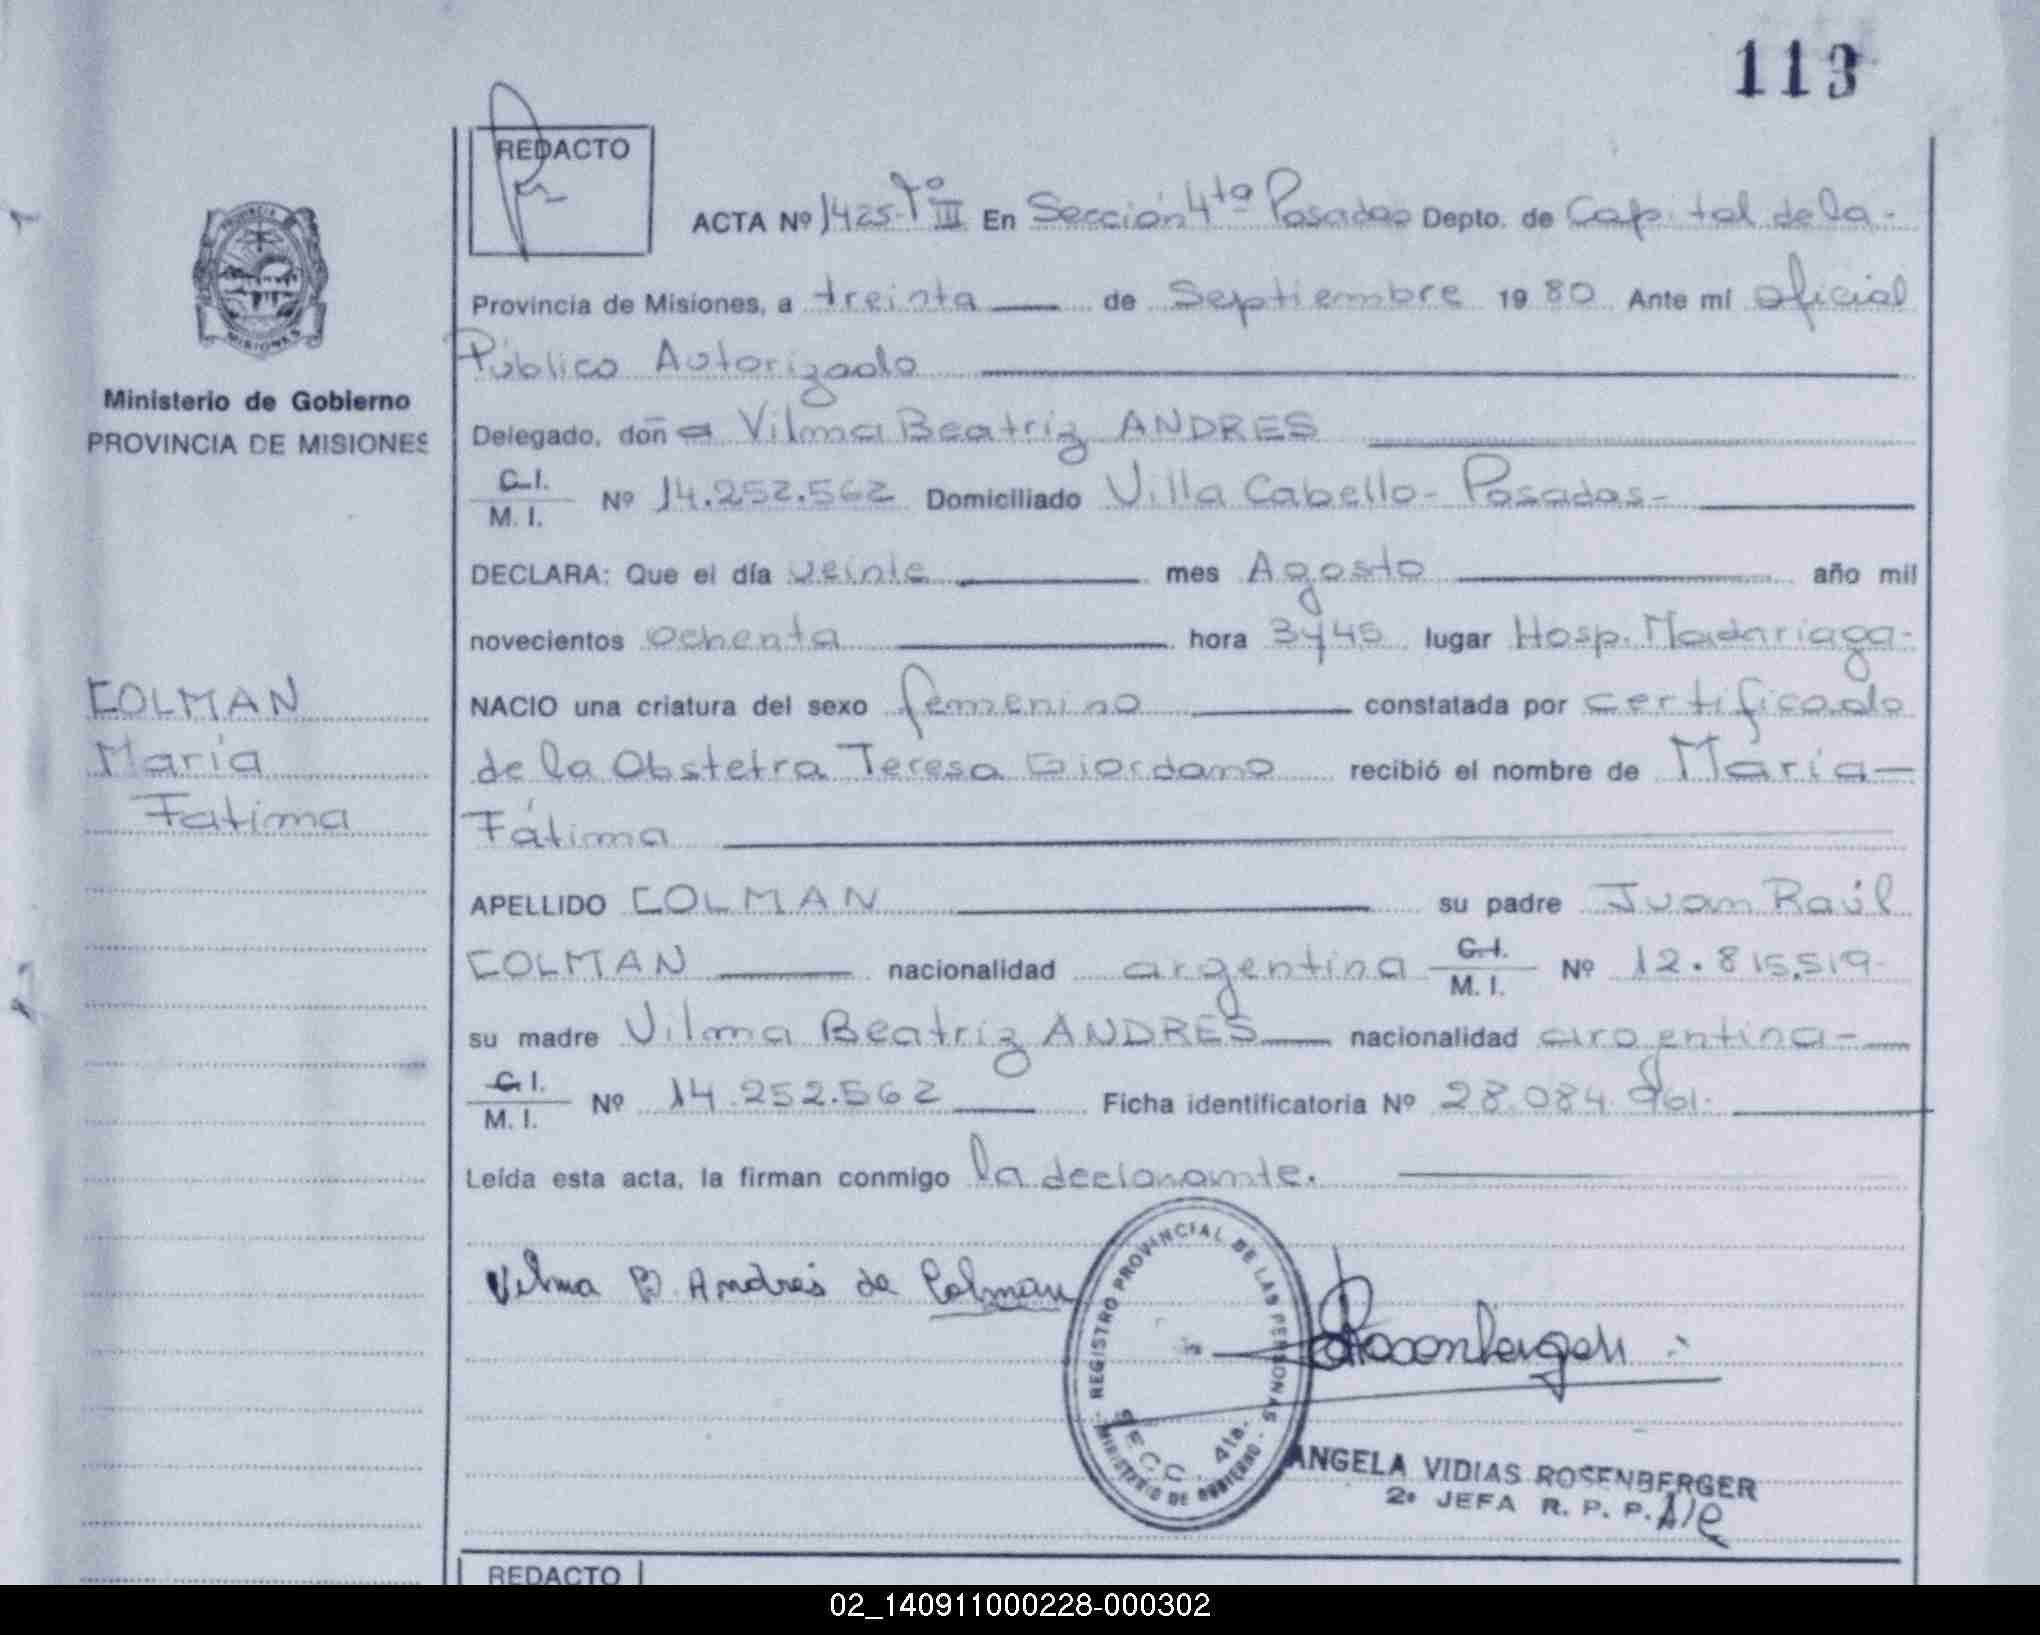 113
REDACTO
ACTA Nº 1425 Tº III En Sección 4ta Posadas Depto. de Capital de la-
Provincia de Misiones, a treinta de Septiembre 1980 Ante mí oficial
Público Autorizado
Delegado, doña Vilma Beatriz ANDRES
C.I.
M. I. Nº 14.252.562 Domiciliado Villa Cabello- Posadas-
DECLARA: Que el día veinte mes Agosto año mil
novecientos ochenta hora 3y45 lugar Hosp. Madariaga-
NACIO una criatura del sexo femenino constatada por certificado
de la Obstetra Teresa Giordano recibió el nombre de María-
Fátima
APELLIDO COLMAN su padre Juan Raúl
COLMAN nacionalidad argentina C.I.
M. I. Nº 12.815.519-
su madre Vilma Beatriz ANDRES nacionalidad argentina-
C.I.
M. I. Nº 14.252.562 Ficha identificatoria Nº 28.084.961.
Leída esta acta, la firman conmigo la declarante.
Vilma B. Andrés de Colman
Rosenberger
REGISTRO PROVINCIAL DE LAS PERSONAS
SECC. 4ta.
MINISTERIO DE GOBIERNO
ANGELA VIDIAS ROSENBERGER
2ª JEFA R. P. P. A/C
PROVINCIA
MISIONES
Ministerio de Gobierno
PROVINCIA DE MISIONES
COLMAN
María
Fatima
REDACTO
02_140911000228-000302